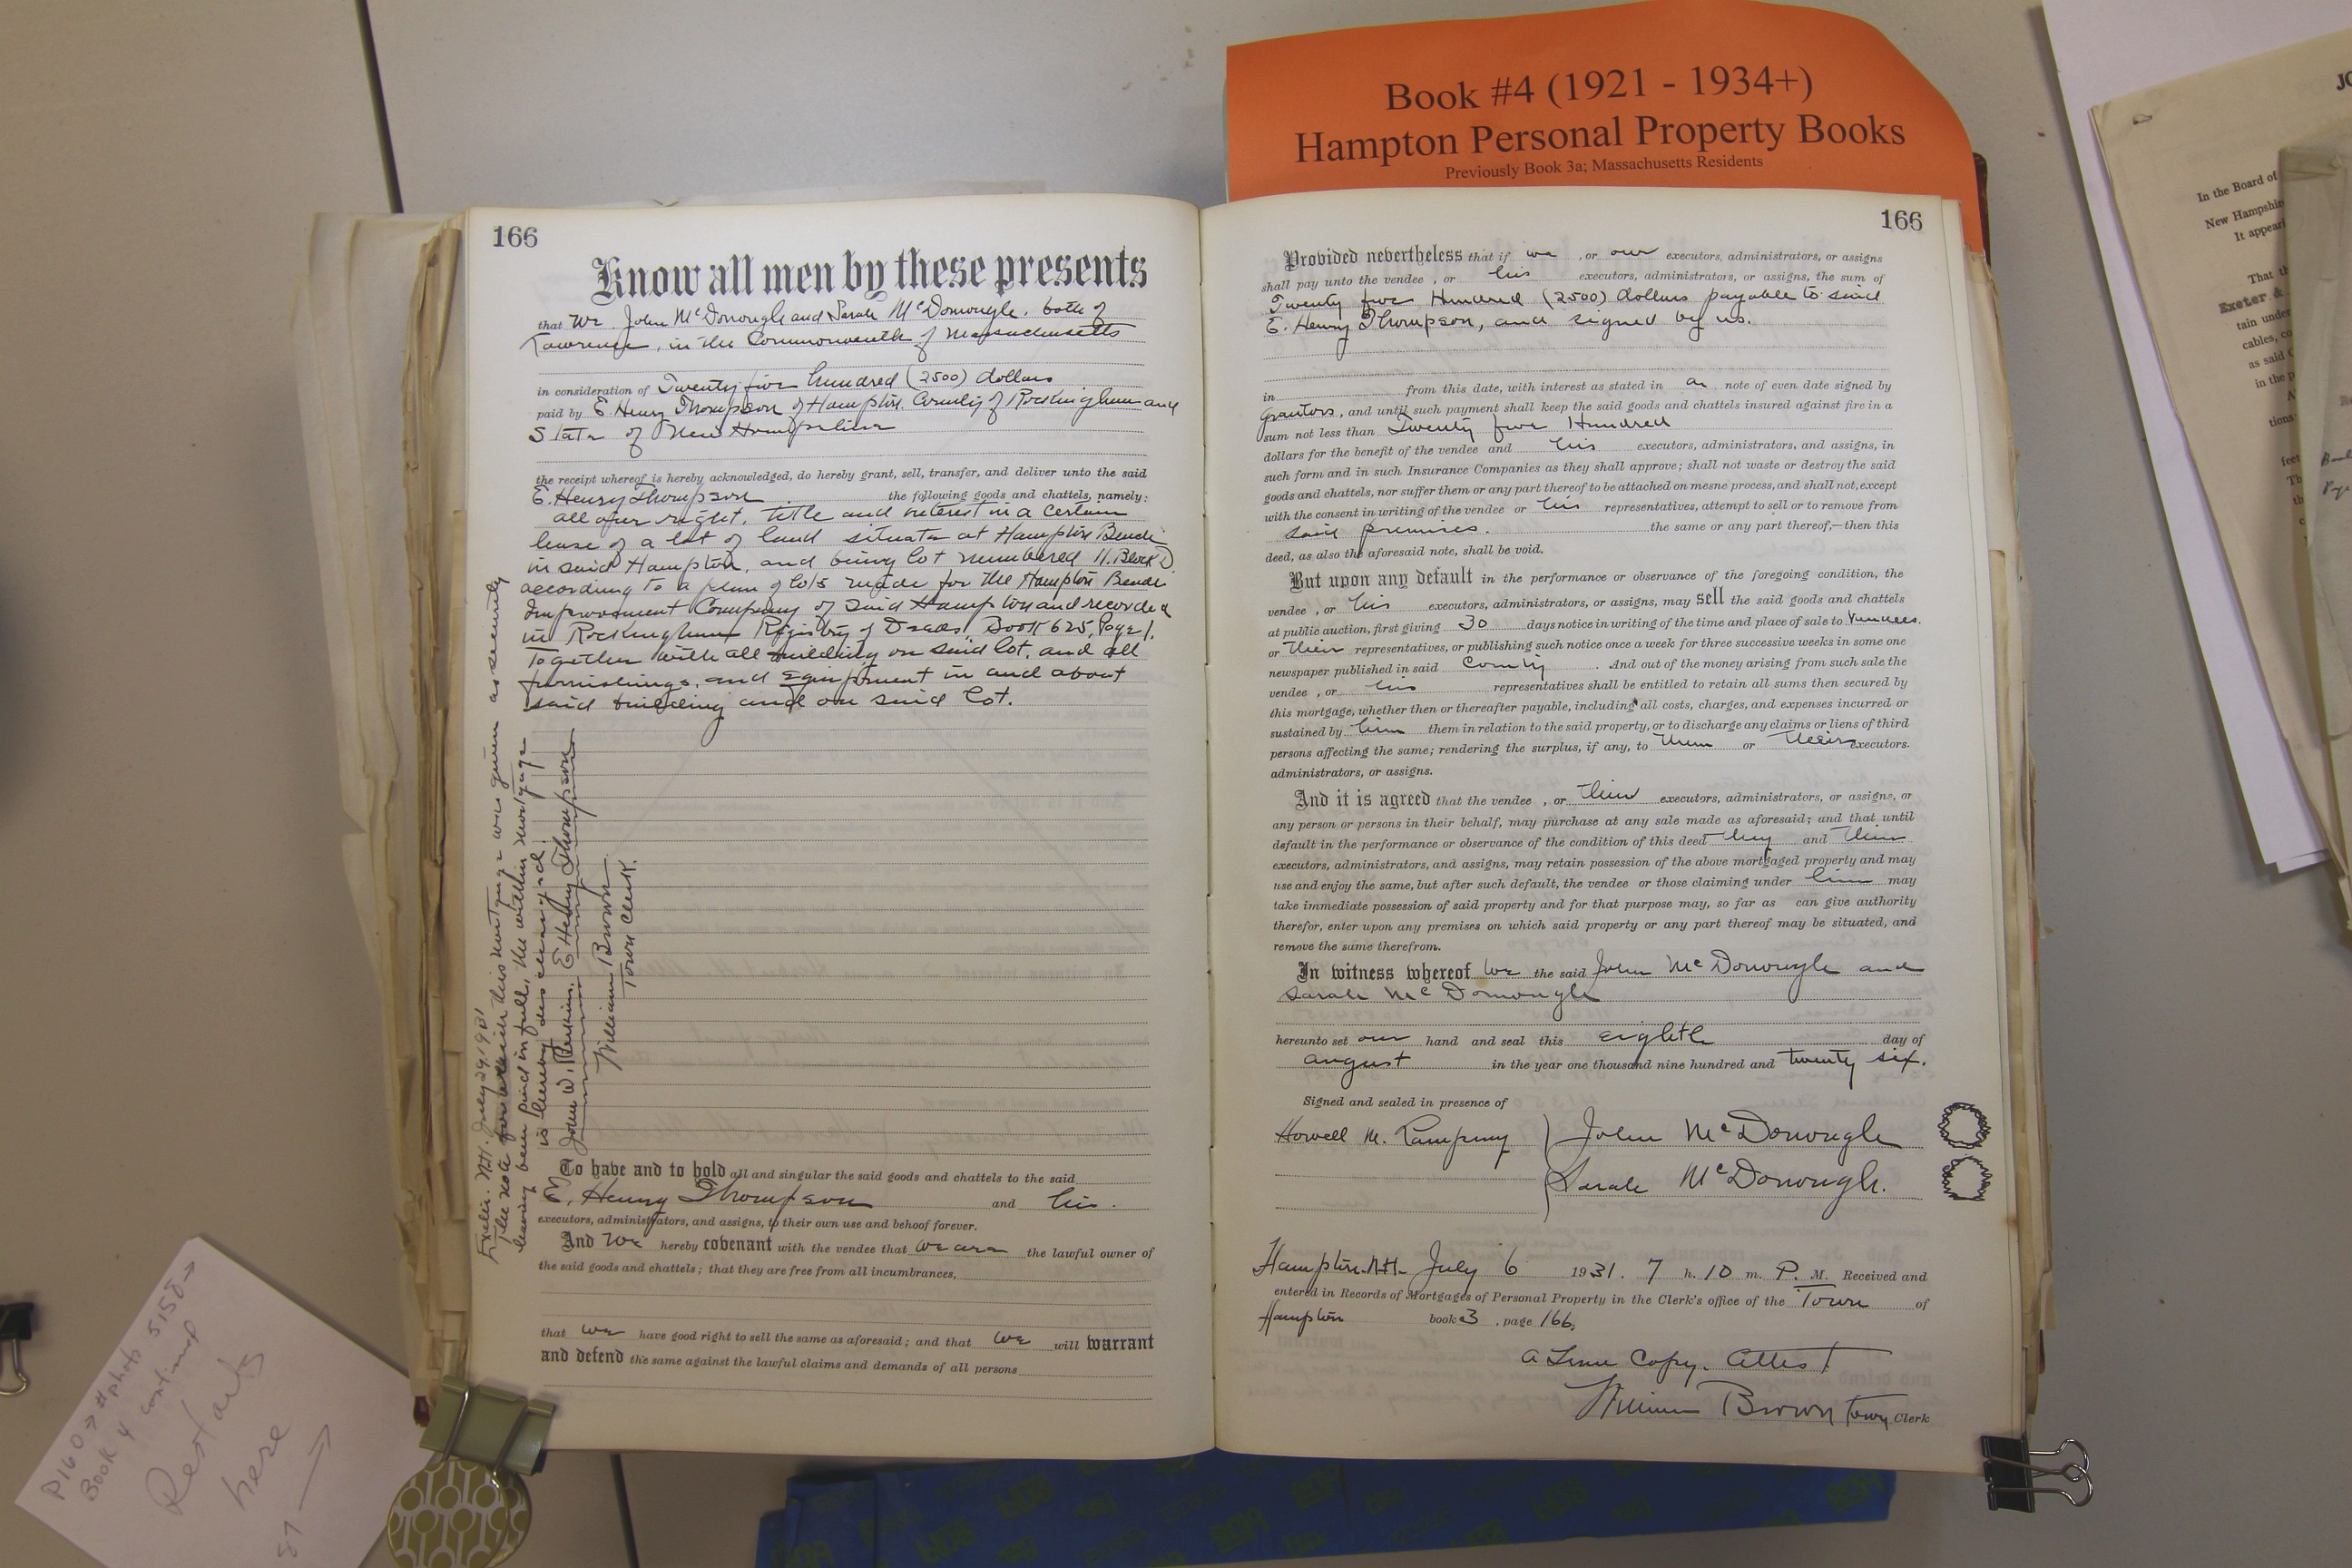 Book #4 (1921 - 1934+)
Hampton Personal Property Books
Previously Book 3a; Massachusetts Residents
166
Know all men by these presents
that We, John McDonough and Sarah McDonough, both of
Lawrence, in the Commonwealth of Massachusetts
in consideration of Twenty five hundred (2500) dollars
paid by E. Henry Thompson of Hampton, County of Rockingham and
State of New Hampshire
the receipt whereof is hereby acknowledged, do hereby grant, sell, transfer, and deliver unto the said
E. Henry Thompson the following goods and chattels, namely:
all of our right, title and interest in a certain
lease of a lot of land situate at Hampton Beach
in said Hampton, and being lot numbered 11. Block D.
according to a plan of lots made for the Hampton Beach
Improvement Company of said Hampton and recorded
in Rockingham Registry of Deeds, Book 625, Page 1.
Together with all building on said lot, and all
furnishings, and Equipment in and about
said building and on said lot.
Exeter. N.H. July 29, 1931
The note for which this mortgage was given as security
having been paid in full, the within mortgage
is hereby discharged.
John W. Perkins. E Henry Thompson
William Brown
Town Clerk.
To have and to hold all and singular the said goods and chattels to the said
E. Henry Thompson and his.
executors, administrators, and assigns, to their own use and behoof forever.
And We hereby covenant with the vendee that we are the lawful owner of
the said goods and chattels; that they are free from all incumbrances,
that we have good right to sell the same as aforesaid; and that we will warrant
and defend the same against the lawful claims and demands of all persons
166
Provided nevertheless that if we , or our executors, administrators, or assigns
shall pay unto the vendee , or his executors, administrators, or assigns, the sum of
Twenty five Hundred (2500) dollars payable to said
E. Henry Thompson, and signed by us.
in from this date, with interest as stated in a note of even date signed by
grantors, and until such payment shall keep the said goods and chattels insured against fire in a
sum not less than Twenty five Hundred
dollars for the benefit of the vendee and his executors, administrators, and assigns, in
such form and in such Insurance Companies as they shall approve; shall not waste or destroy the said
goods and chattels, nor suffer them or any part thereof to be attached on mesne process, and shall not, except
with the consent in writing of the vendee or his representatives, attempt to sell or to remove from
said premises. the same or any part thereof,—then this
deed, as also the aforesaid note, shall be void.
But upon any default in the performance or observance of the foregoing condition, the
vendee , or his executors, administrators, or assigns, may sell the said goods and chattels
at public auction, first giving 30 days notice in writing of the time and place of sale to Vendees.
or their representatives, or publishing such notice once a week for three successive weeks in some one
newspaper published in said County . And out of the money arising from such sale the
vendee , or his representatives shall be entitled to retain all sums then secured by
this mortgage, whether then or thereafter payable, including all costs, charges, and expenses incurred or
sustained by him them in relation to the said property, or to discharge any claims or liens of third
persons affecting the same; rendering the surplus, if any, to them or their executors.
administrators, or assigns.
And it is agreed that the vendee , or their executors, administrators, or assigns, or
any person or persons in their behalf, may purchase at any sale made as aforesaid; and that until
default in the performance or observance of the condition of this deed they and their
executors, administrators, and assigns, may retain possession of the above mortgaged property and may
use and enjoy the same, but after such default, the vendee or those claiming under him may
take immediate possession of said property and for that purpose may, so far as can give authority
therefor, enter upon any premises on which said property or any part thereof may be situated, and
remove the same therefrom.
In witness whereof We the said John McDonough and
Sarah McDonough
hereunto set our hand and seal this eighth day of
august in the year one thousand nine hundred and twenty six.
Signed and sealed in presence of
Howell M. Lamprey John McDonough
Sarah McDonough.
Hampton. N.H. July 6 1931. 7 h. 10 m. P. M. Received and
entered in Records of Mortgages of Personal Property in the Clerk's office of the Town of
Hampton book 3 , page 166.
A True Copy. Attest
William Brown Town Clerk
P160 → #photo 5150 →
Book 4 continued
Restarts
here
87 →
In the Board of
New Hampshire
It appeari
That th
Exeter &
tain under
cables, co
as said C
in the p
tions